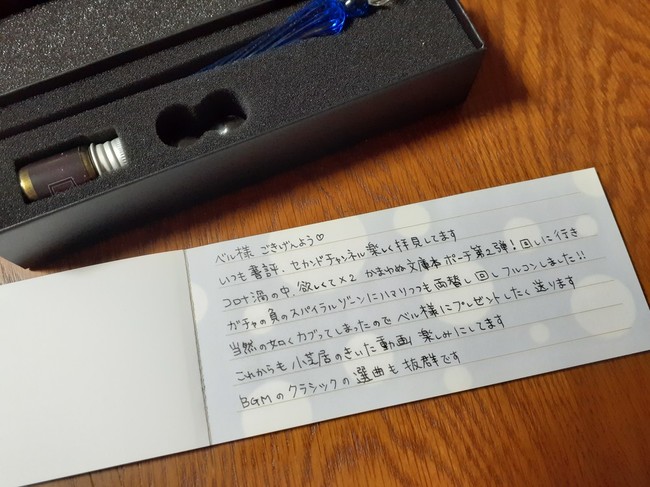 ベル様 ごきげんよう♡
いつも書評、セカンドチャンネル楽しく拝見してます
コロナ渦の中、欲しくて×2 かまわぬ文庫本ポーチ第二弾!回しに行き
ガチャの負のスパイラルゾーンにハマリつつも両替し回しフルコンしました!!
当然の如くカブってしまったのでベル様にプレゼントしたく送ります
これからも小芝居のきいた動画楽しみにしてます
BGMのクラシックの選曲も抜群です